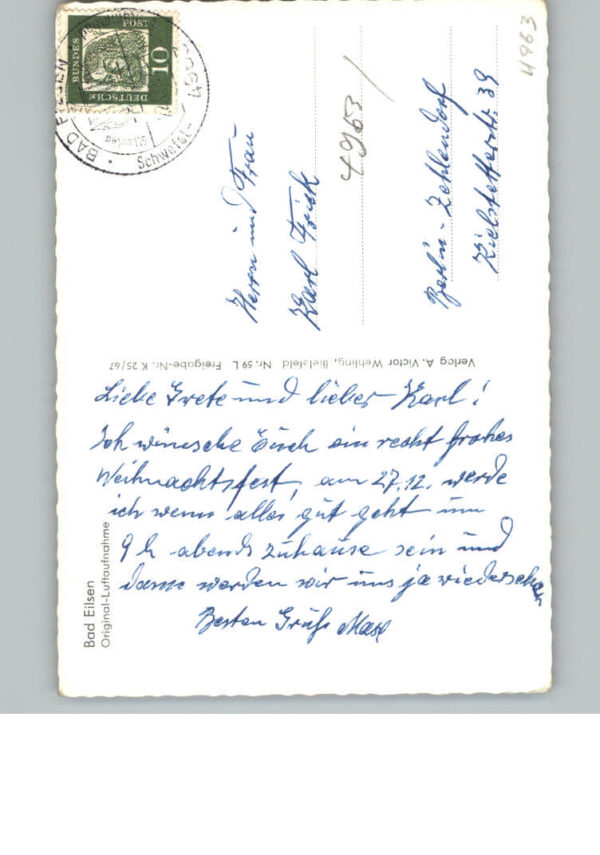 4963
DEUTSCHE
BUNDES
POST
10
BAD EILSEN
Schwefel-
4964
Herrn und Frau
Karl Frisk
4963
Berlin-Zehlendorf
Kielstetterstr. 39
Verlag A. Victor Wehling, Bielefeld Nr. 59 L Freigabe-Nr. K 25/67
Liebe Grete und lieber Karl!
Ich wünsche Euch ein recht frohes
Weihnachtsfest, am 27.12. werde
ich wenn alles gut geht um
9 h abends zuhause sein und
dann werden wir uns ja wiedersehen
Besten Gruß Max
Bad Eilsen
Original-Luftaufnahme